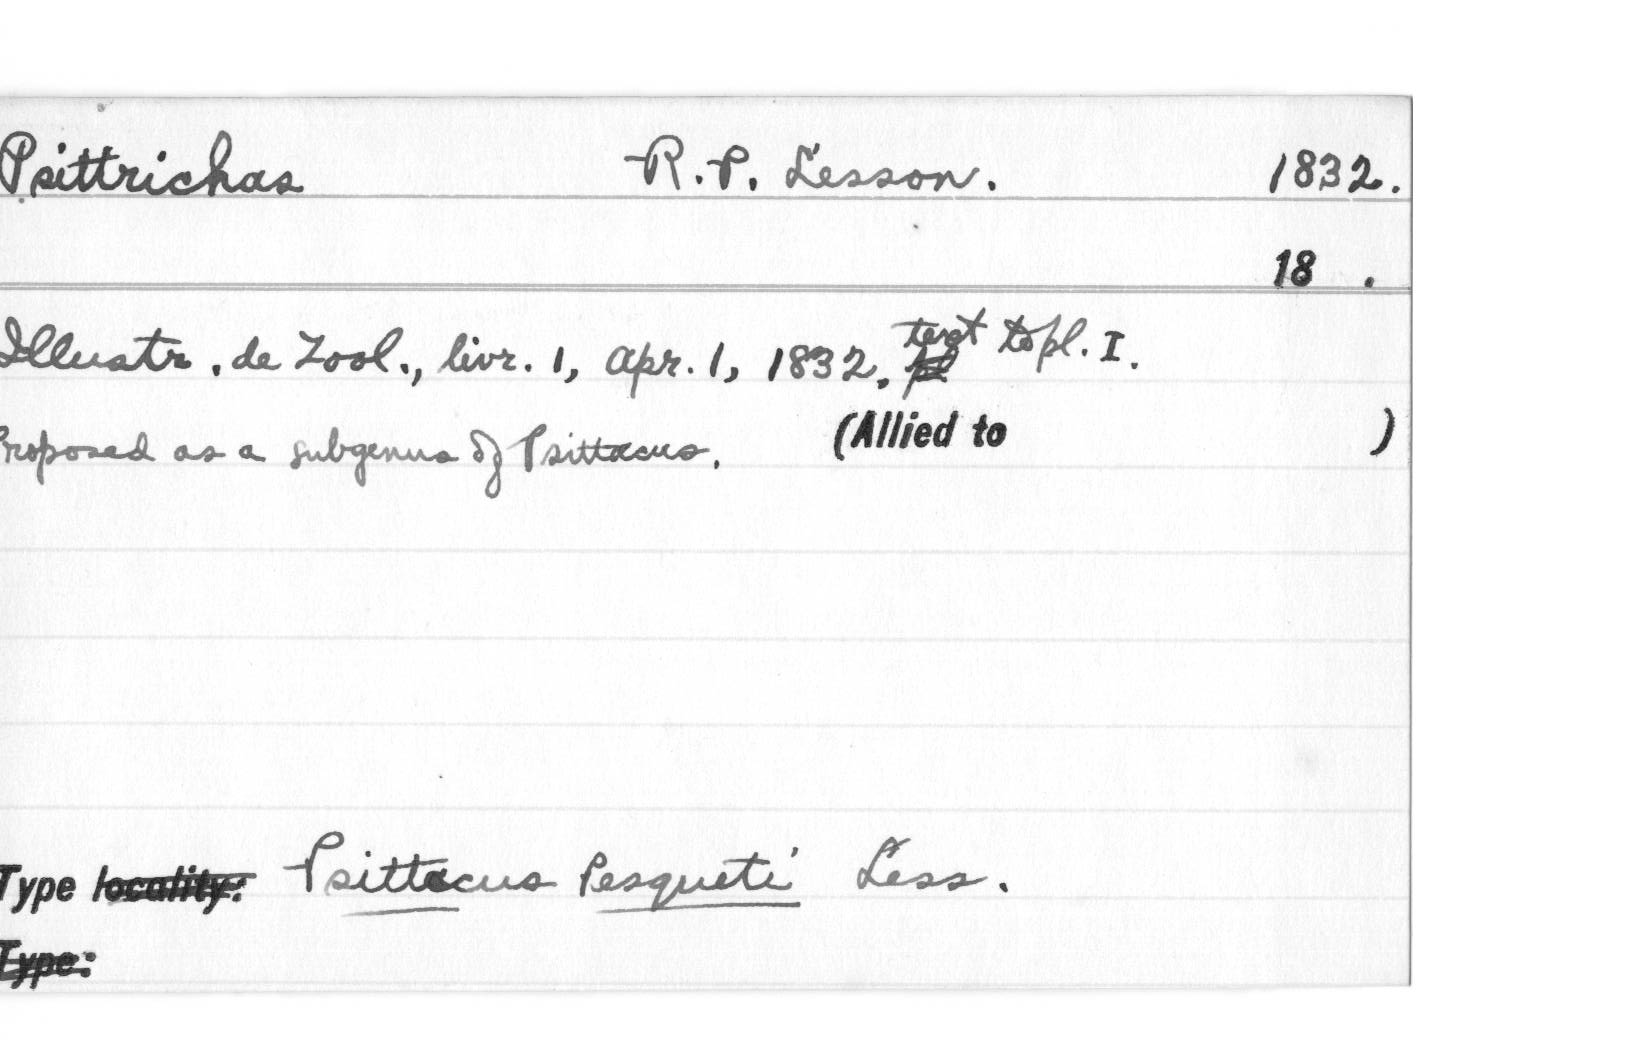 Psittrichas R. P. Lesson. 1832.
18 .
Illustr. de Zool., livr. 1, Apr. 1, 1832, text to pl. I.
Proposed as a subgenus of Psittacus. (Allied to )
Type locality: Psittacus Pesqueti Less.
Type: